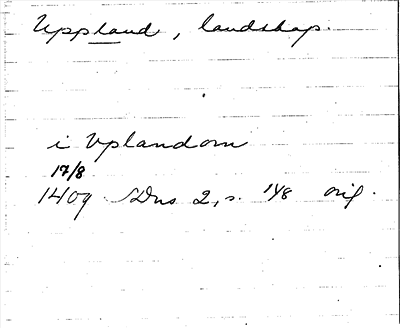 Uppland, landskap.
i Vplandom
17/8
1409 SDns 2, s. 148 orig.